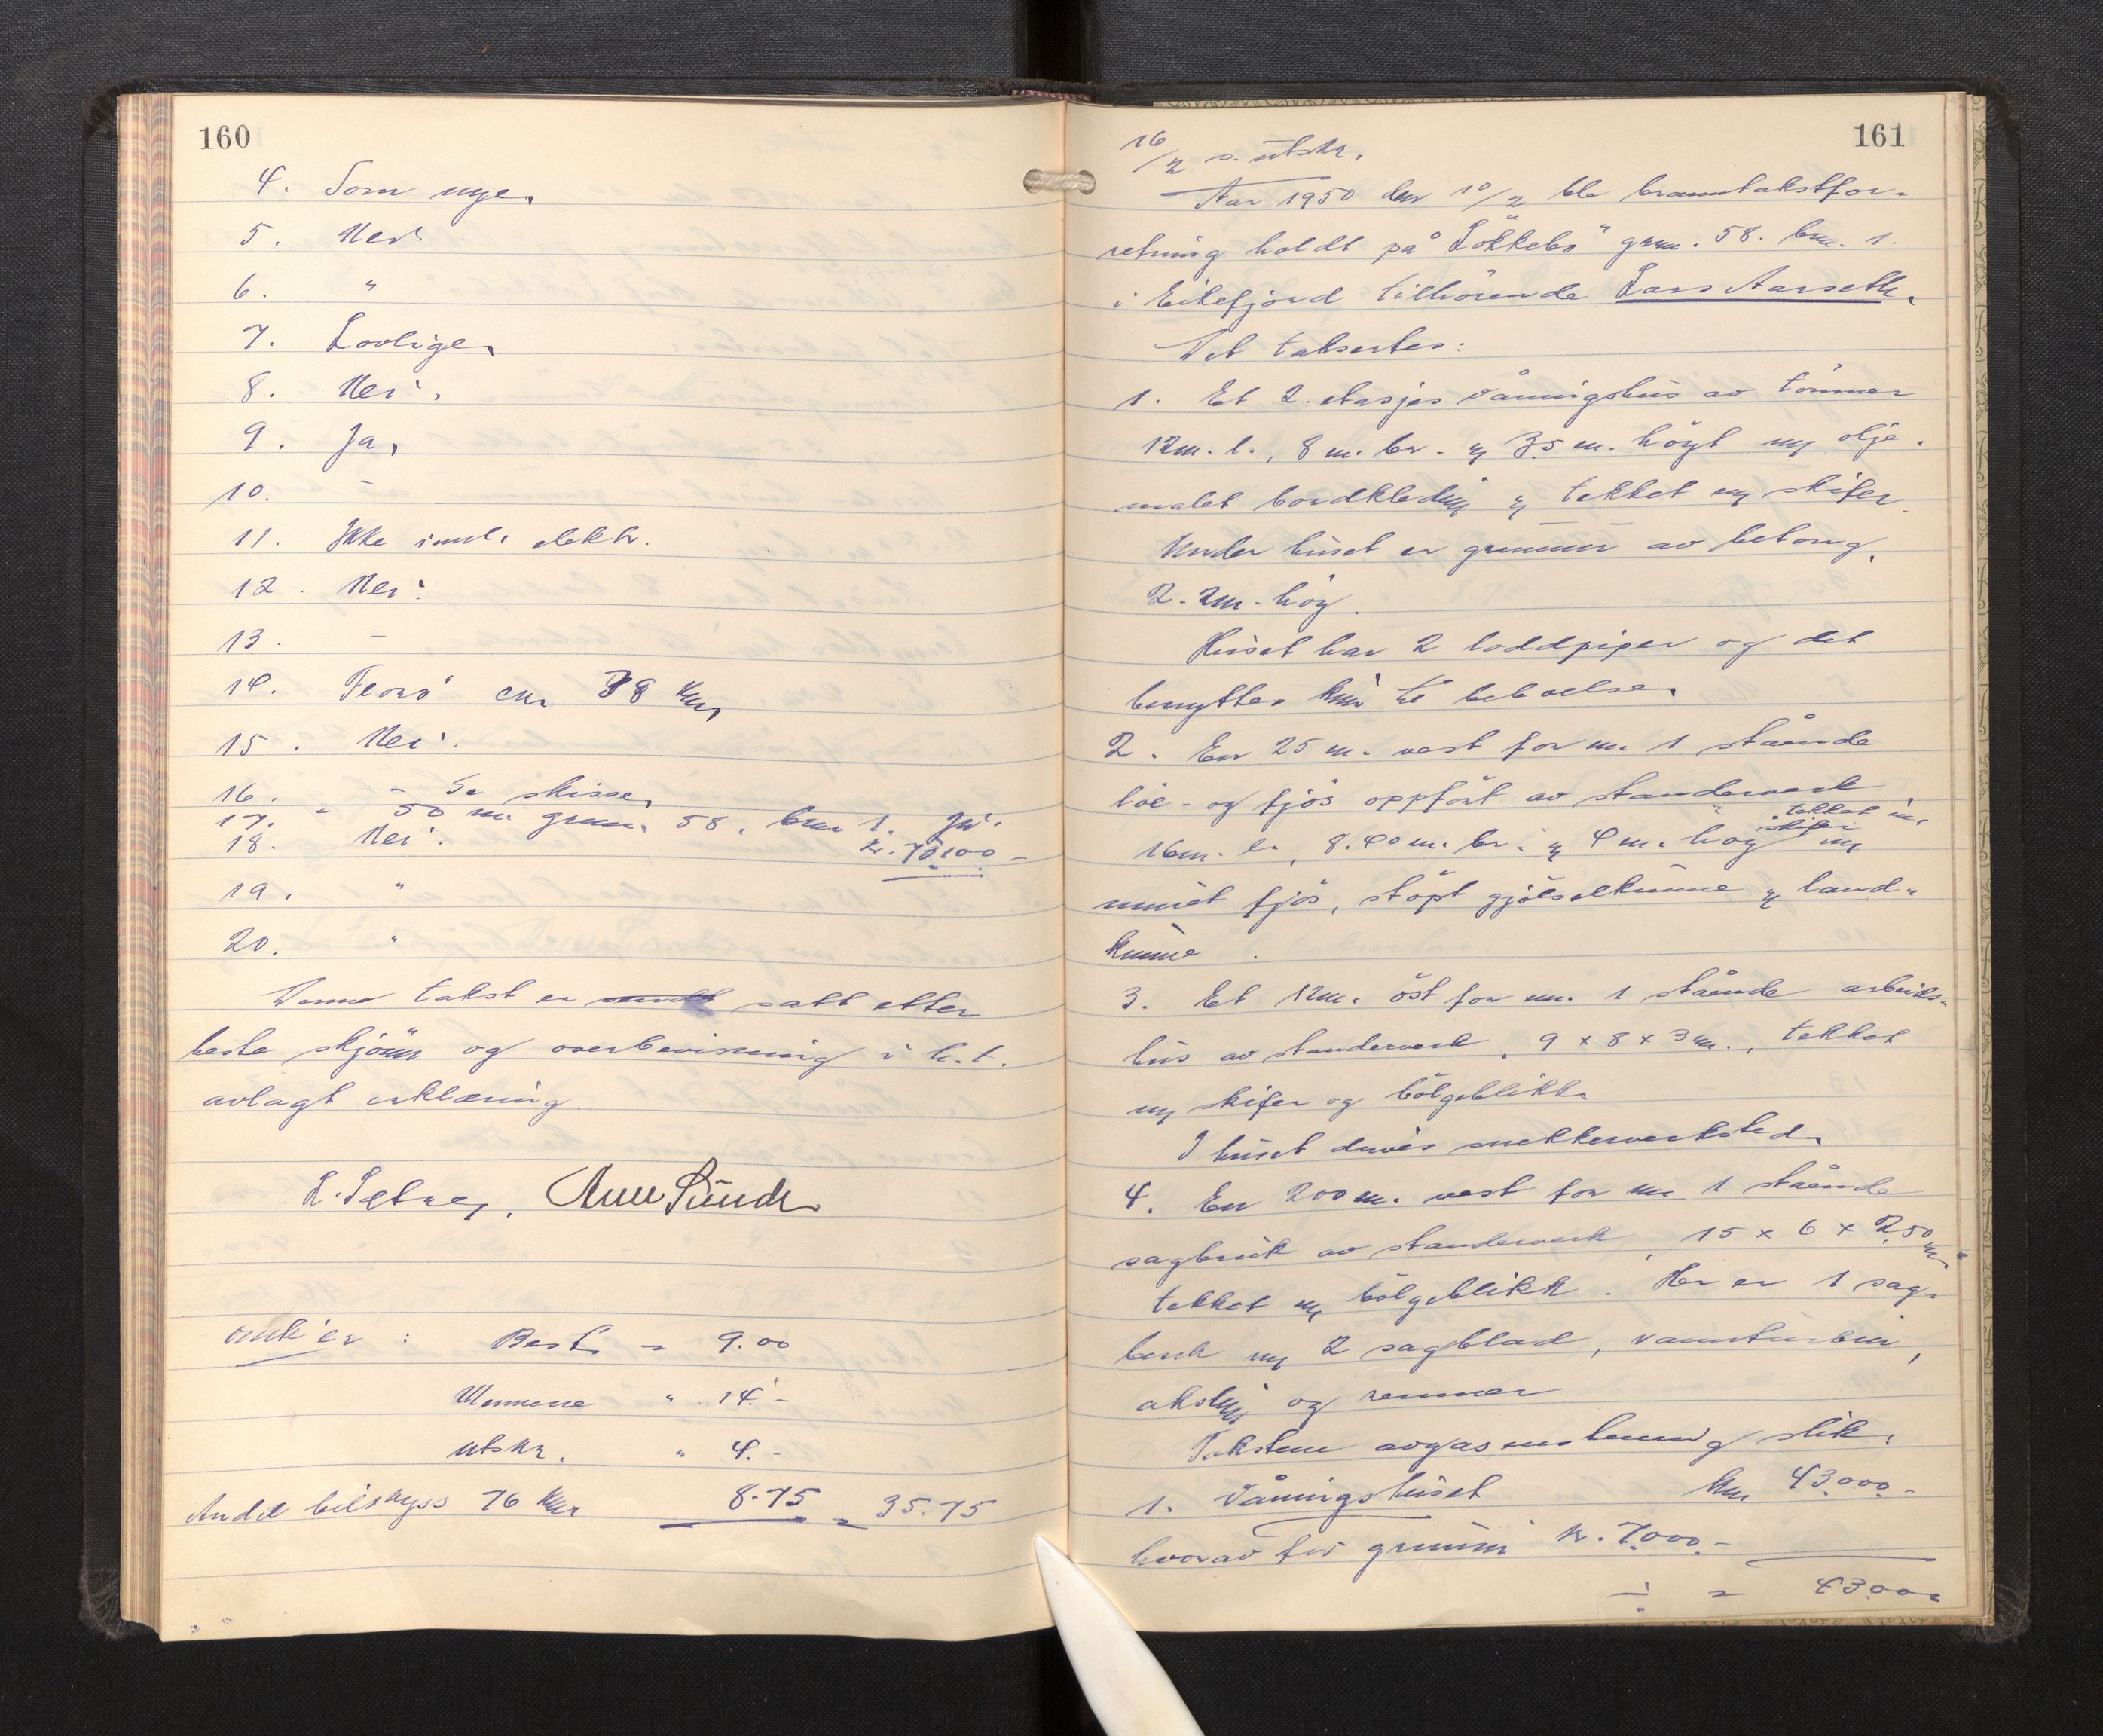 160
4. Som nye.
5. Nei
6. "
7. Lovlige.
8. Nei.
9. Ja.
10. –
11. Ikke innl. elektr.
12. Nei.
13. –
14. Florö ca. 38 km.
15. Nei.
16. – Se skisse.
17. " 50 m. grnr. 58, bnr. 1.
18. Nei. kr. 70.100 –
19. "
20. "
Denne takst er satt etter
beste skjönn og overbevisning i h.t.
avlagt erklæring.
L. Sætre,
Best. = 9.00
Mennene " 14.-
Utskr. " 4.-
Andel bilskyss 76 km 8.75 = 35.75
161
16/2 s. utskr.
Aar 1950 den 10/2 ble branntakstfor-
retning holdt på "Lökkebö" grnr. 58. bnr. 1.
i Eikefjord tilhörende Lars Aarseth.
Det takseres:
1. Et 2. etasjes våningshus av tömmer
12m. l., 8 m. br. og 3.5 m. höyt m/ olje-
malet bordkledning og tekket m/ skifer.
Under huset er grunnmur av betong,
2.2m. höy.
Huset har 2 loddpiper og det
benyttes kun til beboelse.
2. En 25 m. vest for nr. 1 stående
löe- og fjös oppfört av standerverk
tekket m.
16m. l., 8.40 m. br. og 4 m. höy skifer m/
muret fjös, stöpt gjödselkumme og land-
kumme.
3. Et 12m. öst for nr. 1 stående arbeids-
hus av standerverk, 9 x 8 x 3 m., tekket
m/ skifer og bölgeblikk.
I huset drives snekkerverksted.
4. En 200 m. vest for nr. 1 stående
sagbruk av standerverk, 15 x 6 x 2.50 m.
tekket m/ bölgeblikk. Her er 1 sag-
benk m/ 2 sagblad, vannturbin,
aksling og remmer
Taksten avgas enstemmig slik:
1. Våningshuset kr. 43.000.-
hvorav for grunnmur kr. 7.000.-
÷ = 43.000